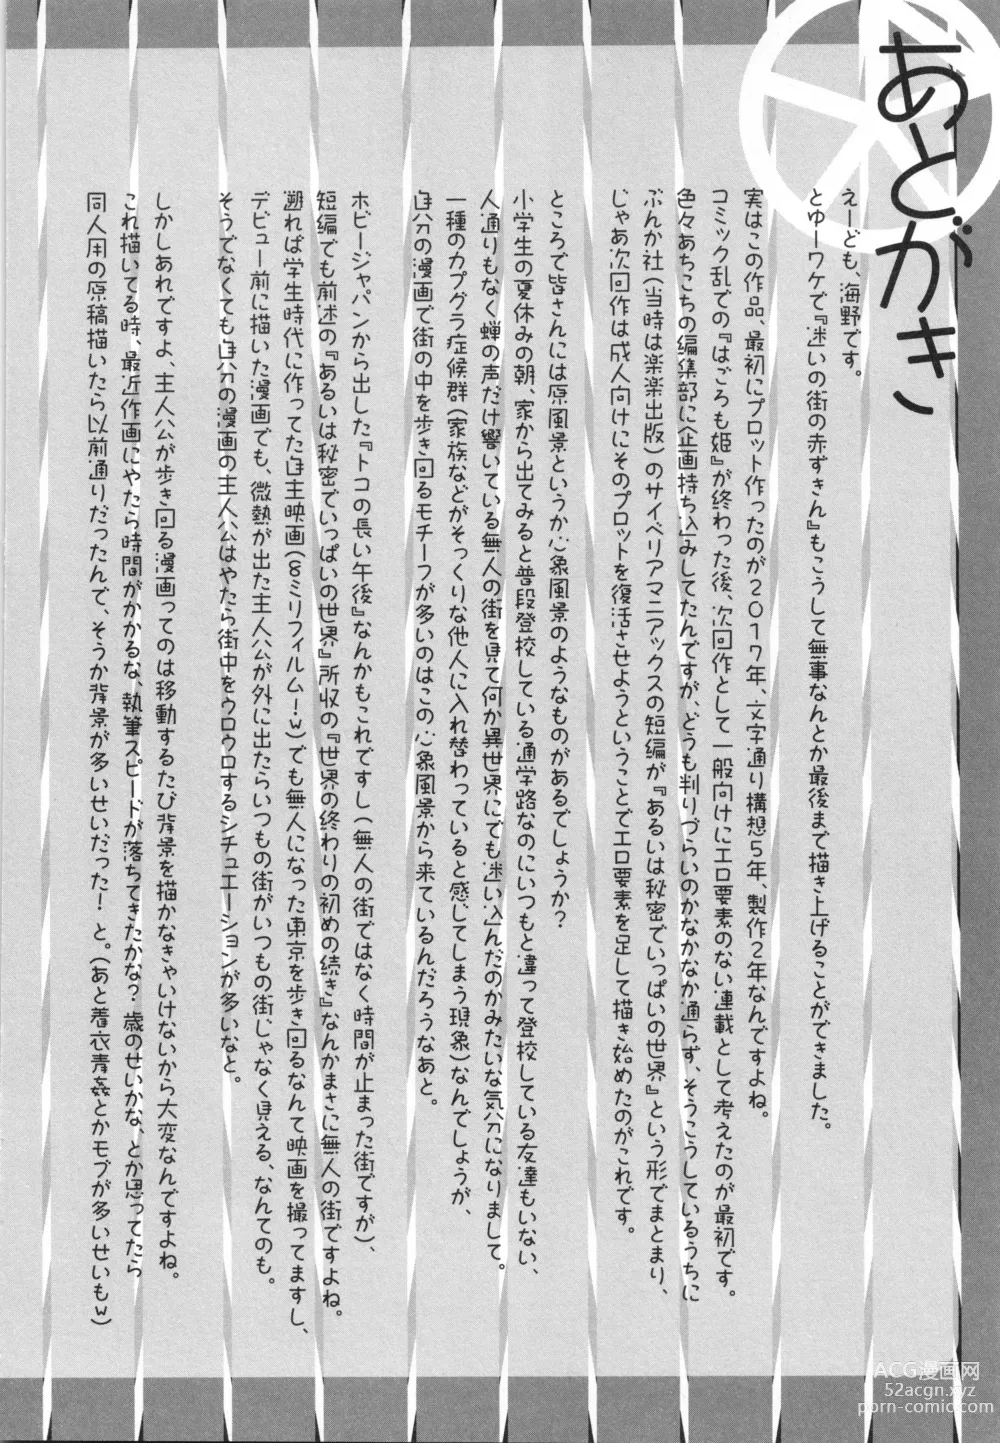 あとがき
えーども、海野です。
とゆーワケで『迷いの街の赤ずきん』もこうして無事なんとか最後まで描き上げることができました。
実はこの作品、最初にプロット作ったのが2017年、文字通り構想5年、製作2年なんですよね。
コミック乱での『はごろも姫』が終わった後、次回作として一般向けにエロ要素のない連載として考えたのが最初です。
色々あちこちの編集部に企画持ち込みしてたんですが、どうも判りづらいのかなかなか通らず、そうこうしているうちに
ぶんか社(当時は楽楽出版)のサイベリアマニアックスの短編が『あるいは秘密でいっぱいの世界』という形でまとまり、
じゃあ次回作は成人向けにそのプロットを復活させようということでエロ要素を足して描き始めたのがこれです。
ところで皆さんには原風景というか心象風景のようなものがあるでしょうか?
小学生の夏休みの朝、家から出てみると普段登校している通学路なのにいつもと違って登校している友達もいない、
人通りもなく蝉の声だけ響いている無人の街を見て何か異世界にでも迷い込んだのかみたいな気分になりまして。
一種のカプグラ症候群(家族などがそっくりな他人に入れ替わっていると感じてしまう現象)なんでしょうが、
自分の漫画で街の中を歩き回るモチーフが多いのはこの心象風景から来ているんだろうなあと。
ホビージャパンから出した『トコの長い午後』なんかもこれですし(無人の街ではなく時間が止まった街ですが)、
短編でも前述の『あるいは秘密でいっぱいの世界』所収の『世界の終わりの初めの続き』なんかまさに無人の街ですよね。
遡れば学生時代に作ってた自主映画(8ミリフィルム!w)でも無人になった東京を歩き回るなんて映画を撮ってますし、
デビュー前に描いた漫画でも、微熱が出た主人公が外に出たらいつもの街がいつもの街じゃなく見える、なんてのも。
そうでなくても自分の漫画の主人公はやたら街中をウロウロするシチュエーションが多いなと。
しかしあれですよ、主人公が歩き回る漫画ってのは移動するたび背景を描かなきゃいけないから大変なんですよね。
これ描いてる時、最近作画にやたら時間がかかるな、執筆スピードが落ちてきたかな?歳のせいかな、とか思ってたら
同人用の原稿描いたら以前通りだったんで、そうか背景が多いせいだった!と。(あと着衣青姦とかモブが多いせいもw)
ACG漫画网
52acgn.xyz
porn-comic.com